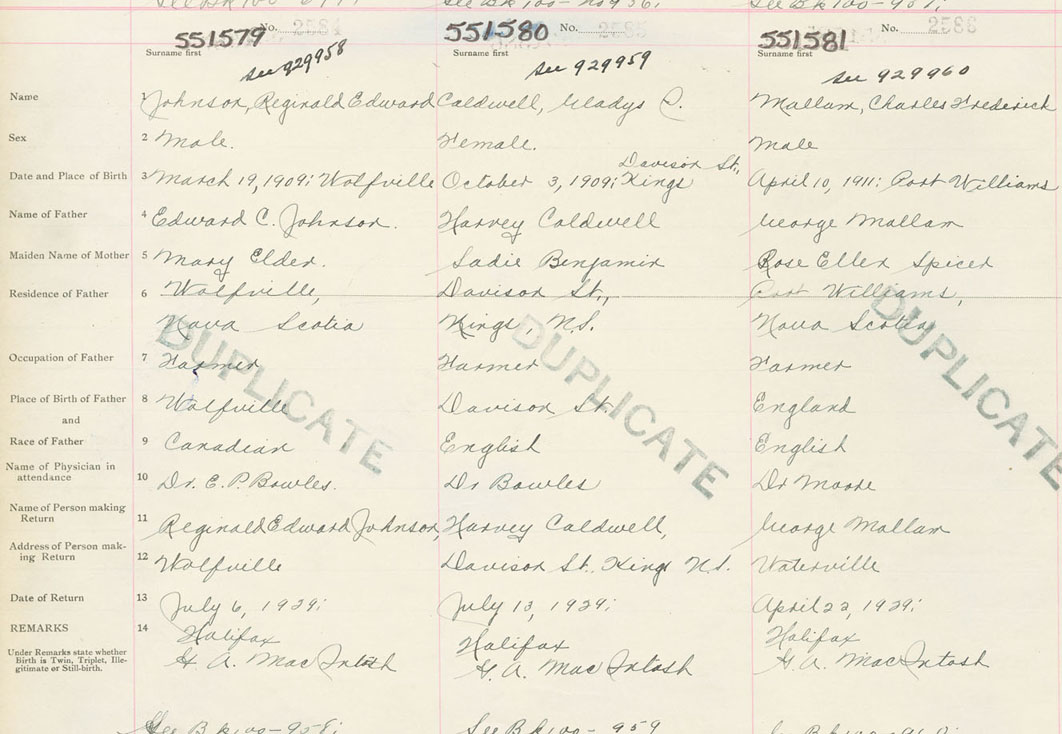 See Bk 100-
See Bk 100-
See Bk 100-
551579 No. 2584
551580 No. 2585
551581 No. 2586
Surname first Surname first Surname first
See 929958 See 929959 See 929960
Name 1 Johnson, Reginald Edward Caldwell, Gladys C. Mallam, Charles Frederick
Sex 2 Male. Female. Male
Davison St.,
Date and Place of Birth 3 March 19, 1909; Wolfville October 3, 1909; Kings April 10, 1911: Port Williams
Name of Father 4 Edward C. Johnson. Harvey Caldwell George Mallam
Maiden Name of Mother 5 Mary Elder. Sadie Benjamin Rose Ellen Spicer
Residence of Father 6 Wolfville, Davison St., Port Williams,
Nova Scotia Kings, N.S. Nova Scotia
Occupation of Father 7 Farmer Farmer Farmer
Place of Birth of Father 8 Wolfville Davison St. England
and
Race of Father 9 Canadian English English
Name of Physician in
attendance 10 Dr. E. P Bowles. Dr Bowles Dr Moore
Name of Person making
Return 11 Reginald Edward Johnson, Harvey Caldwell, George Mallam
Address of Person mak-
ing Return 12 Wolfville Davison St. Kings N.S. Waterville
Date of Return 13 July 6, 1939; July 13, 1939; April 22, 1939;
REMARKS 14 Halifax Halifax Halifax
Under Remarks state whether
Birth is Twin, Triplet, Ille-
gitimate or Still-birth.
H. A. MacIntosh H. A. MacIntosh H. A. MacIntosh
DUPLICATE DUPLICATE DUPLICATE
See Bk 100-958; See Bk 100-959